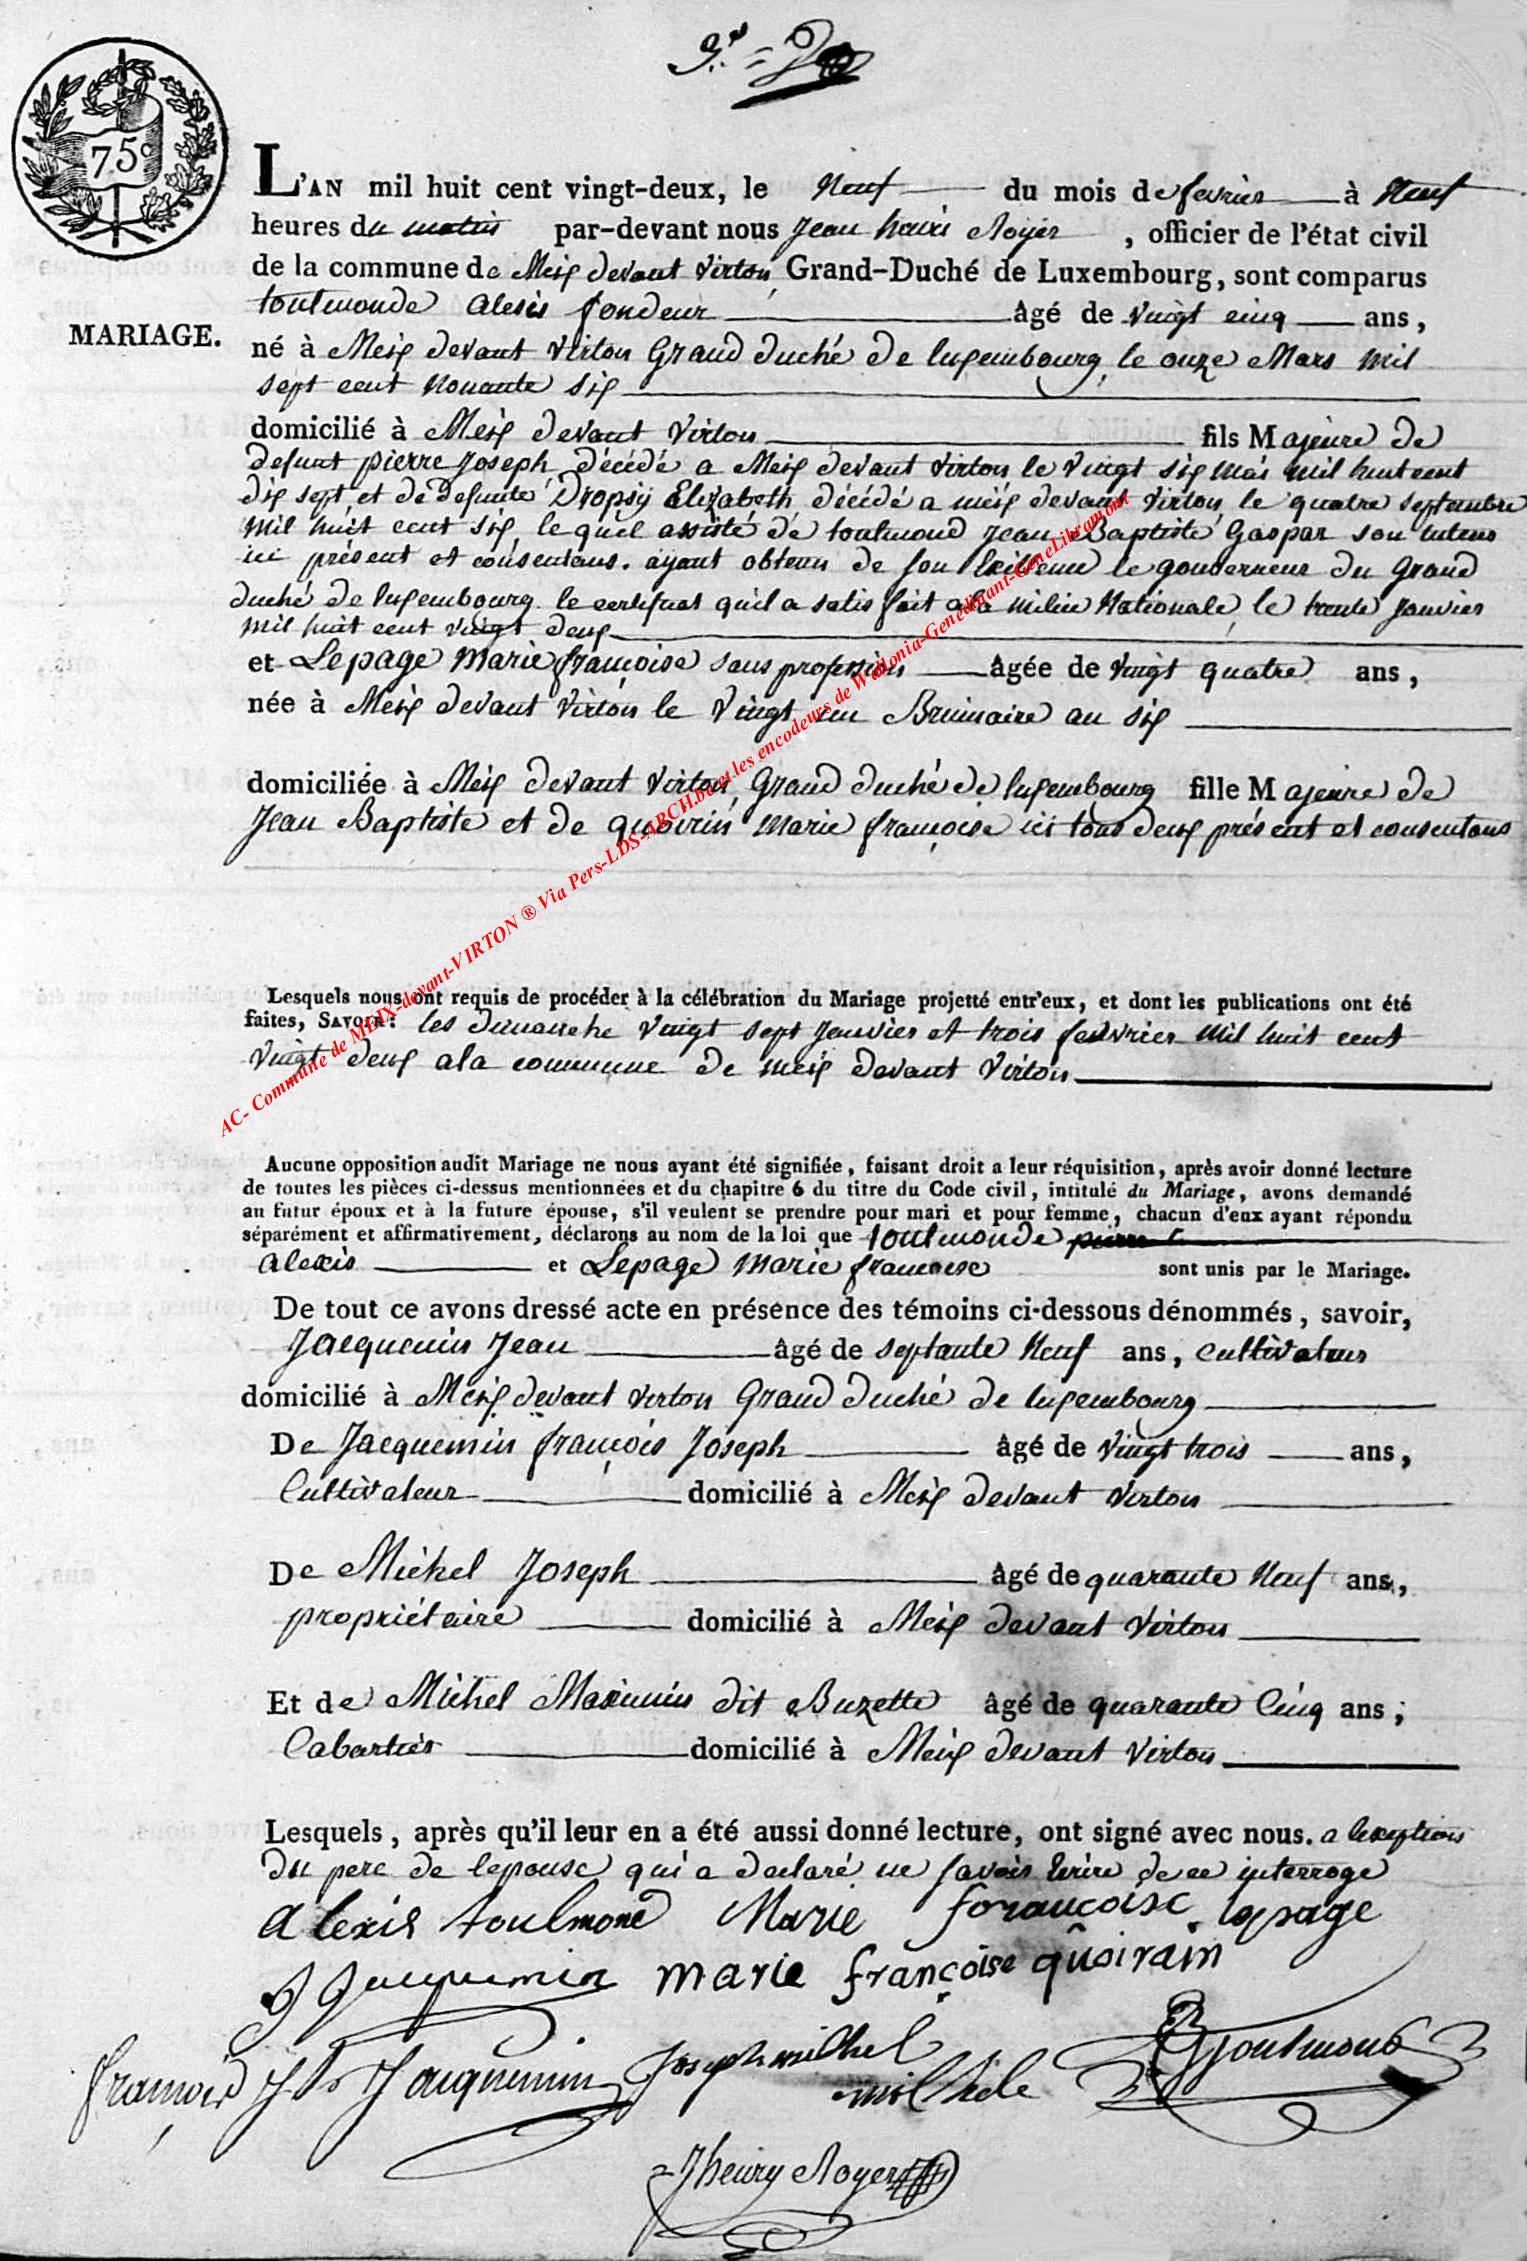 75c
L'AN mil huit cent vingt-deux, le Neuf du mois de fevrier à Neuf
heures du matin par-devant nous Jean henri Royer, officier de l'état civil
de la commune de Meix devant virton, Grand-Duché de Luxembourg, sont comparus
toulmonde alexis fondeur âgé de vingt cinq ans,
MARIAGE.
né à Meix devant virton Grand duché de luxembourg, le onze Mars mil
sept cent Nonante six
domicilié à Meix devant virton fils Majeure de
defunt pierre Joseph, décédé a Meix devant virton le vingt six mai mil huit cent
dix sept et de defunte Dropsy Elizabeth, décédé a meix devant virton, le quatre septembre
mil huit cent six, le quel assisté de toulmond Jean Baptiste Gaspar son tuteur
ici présent et consentans. ayant obtenu de son Exellence le gouverneur du Grand
duché de luxembourg le certificat qu'il a satisfait a la milice Nationale, le trente Janvier
mil huit cent vingt deux
et Lepage Marie françoise sans profession âgée de vingt quatre ans,
née à Meix devant virton le vingt un Brumaire an six
domiciliée à Meix devant virton, Grand duché de luxembourg fille Majeure de
Jean Baptiste et de quoirin Marie françoise ici tous deux présent et consentans
Lesquels nous ont requis de procéder à la célébration du Mariage projetté entr'eux, et dont les publications ont été
faites, SAVOIR: les dimanche vingt sept Janvier et trois feuvrier mil huit cent
vingt deux a la commune de meix devant virton
AC- Commune de MEIX-devant-VIRTON ® Via Pers-LDS-ARCH.be et les encodeurs de Wallonia-Genedinant-GeneLibramont
Aucune opposition audit Mariage ne nous ayant été signifiée, faisant droit a leur réquisition, après avoir donné lecture
de toutes les pièces ci-dessus mentionnées et du chapitre 6 du titre du Code civil, intitulé du Mariage, avons demandé
au futur époux et à la future épouse, s'il veulent se prendre pour mari et pour femme, chacun d'eux ayant répondu
séparément et affirmativement, déclarons au nom de la loi que toulmonde
alexis et Lepage Marie francoise sont unis par le Mariage.
De tout ce avons dressé acte en présence des témoins ci-dessous dénommés, savoir,
Jacquemin Jean âgé de septante Neuf ans, cultivateur
domicilié à Meix devant virton Grand duché de luxembourg
De Jacquemin françois Joseph âgé de vingt trois ans,
Cultivateur domicilié à Meix devant virton
De Michel Joseph âgé de quarante Neuf ans,
propriétaire domicilié à Meix devant virton
Et de Michel Maximin dit Buzette âgé de quarante Cinq ans;
Cabartier domicilié à Meix devant virton
Lesquels, après qu'il leur en a été aussi donné lecture, ont signé avec nous. a lexeptions
du pere de lepouse qui a declaré ne savoir Ecrire de ce interroge
alexis toulmond Marie forancoise lepage
J Jacquemin marie françoise quoirain
francois Jh Jacquemin Joseph michel Toulmond
Jhenry Royer